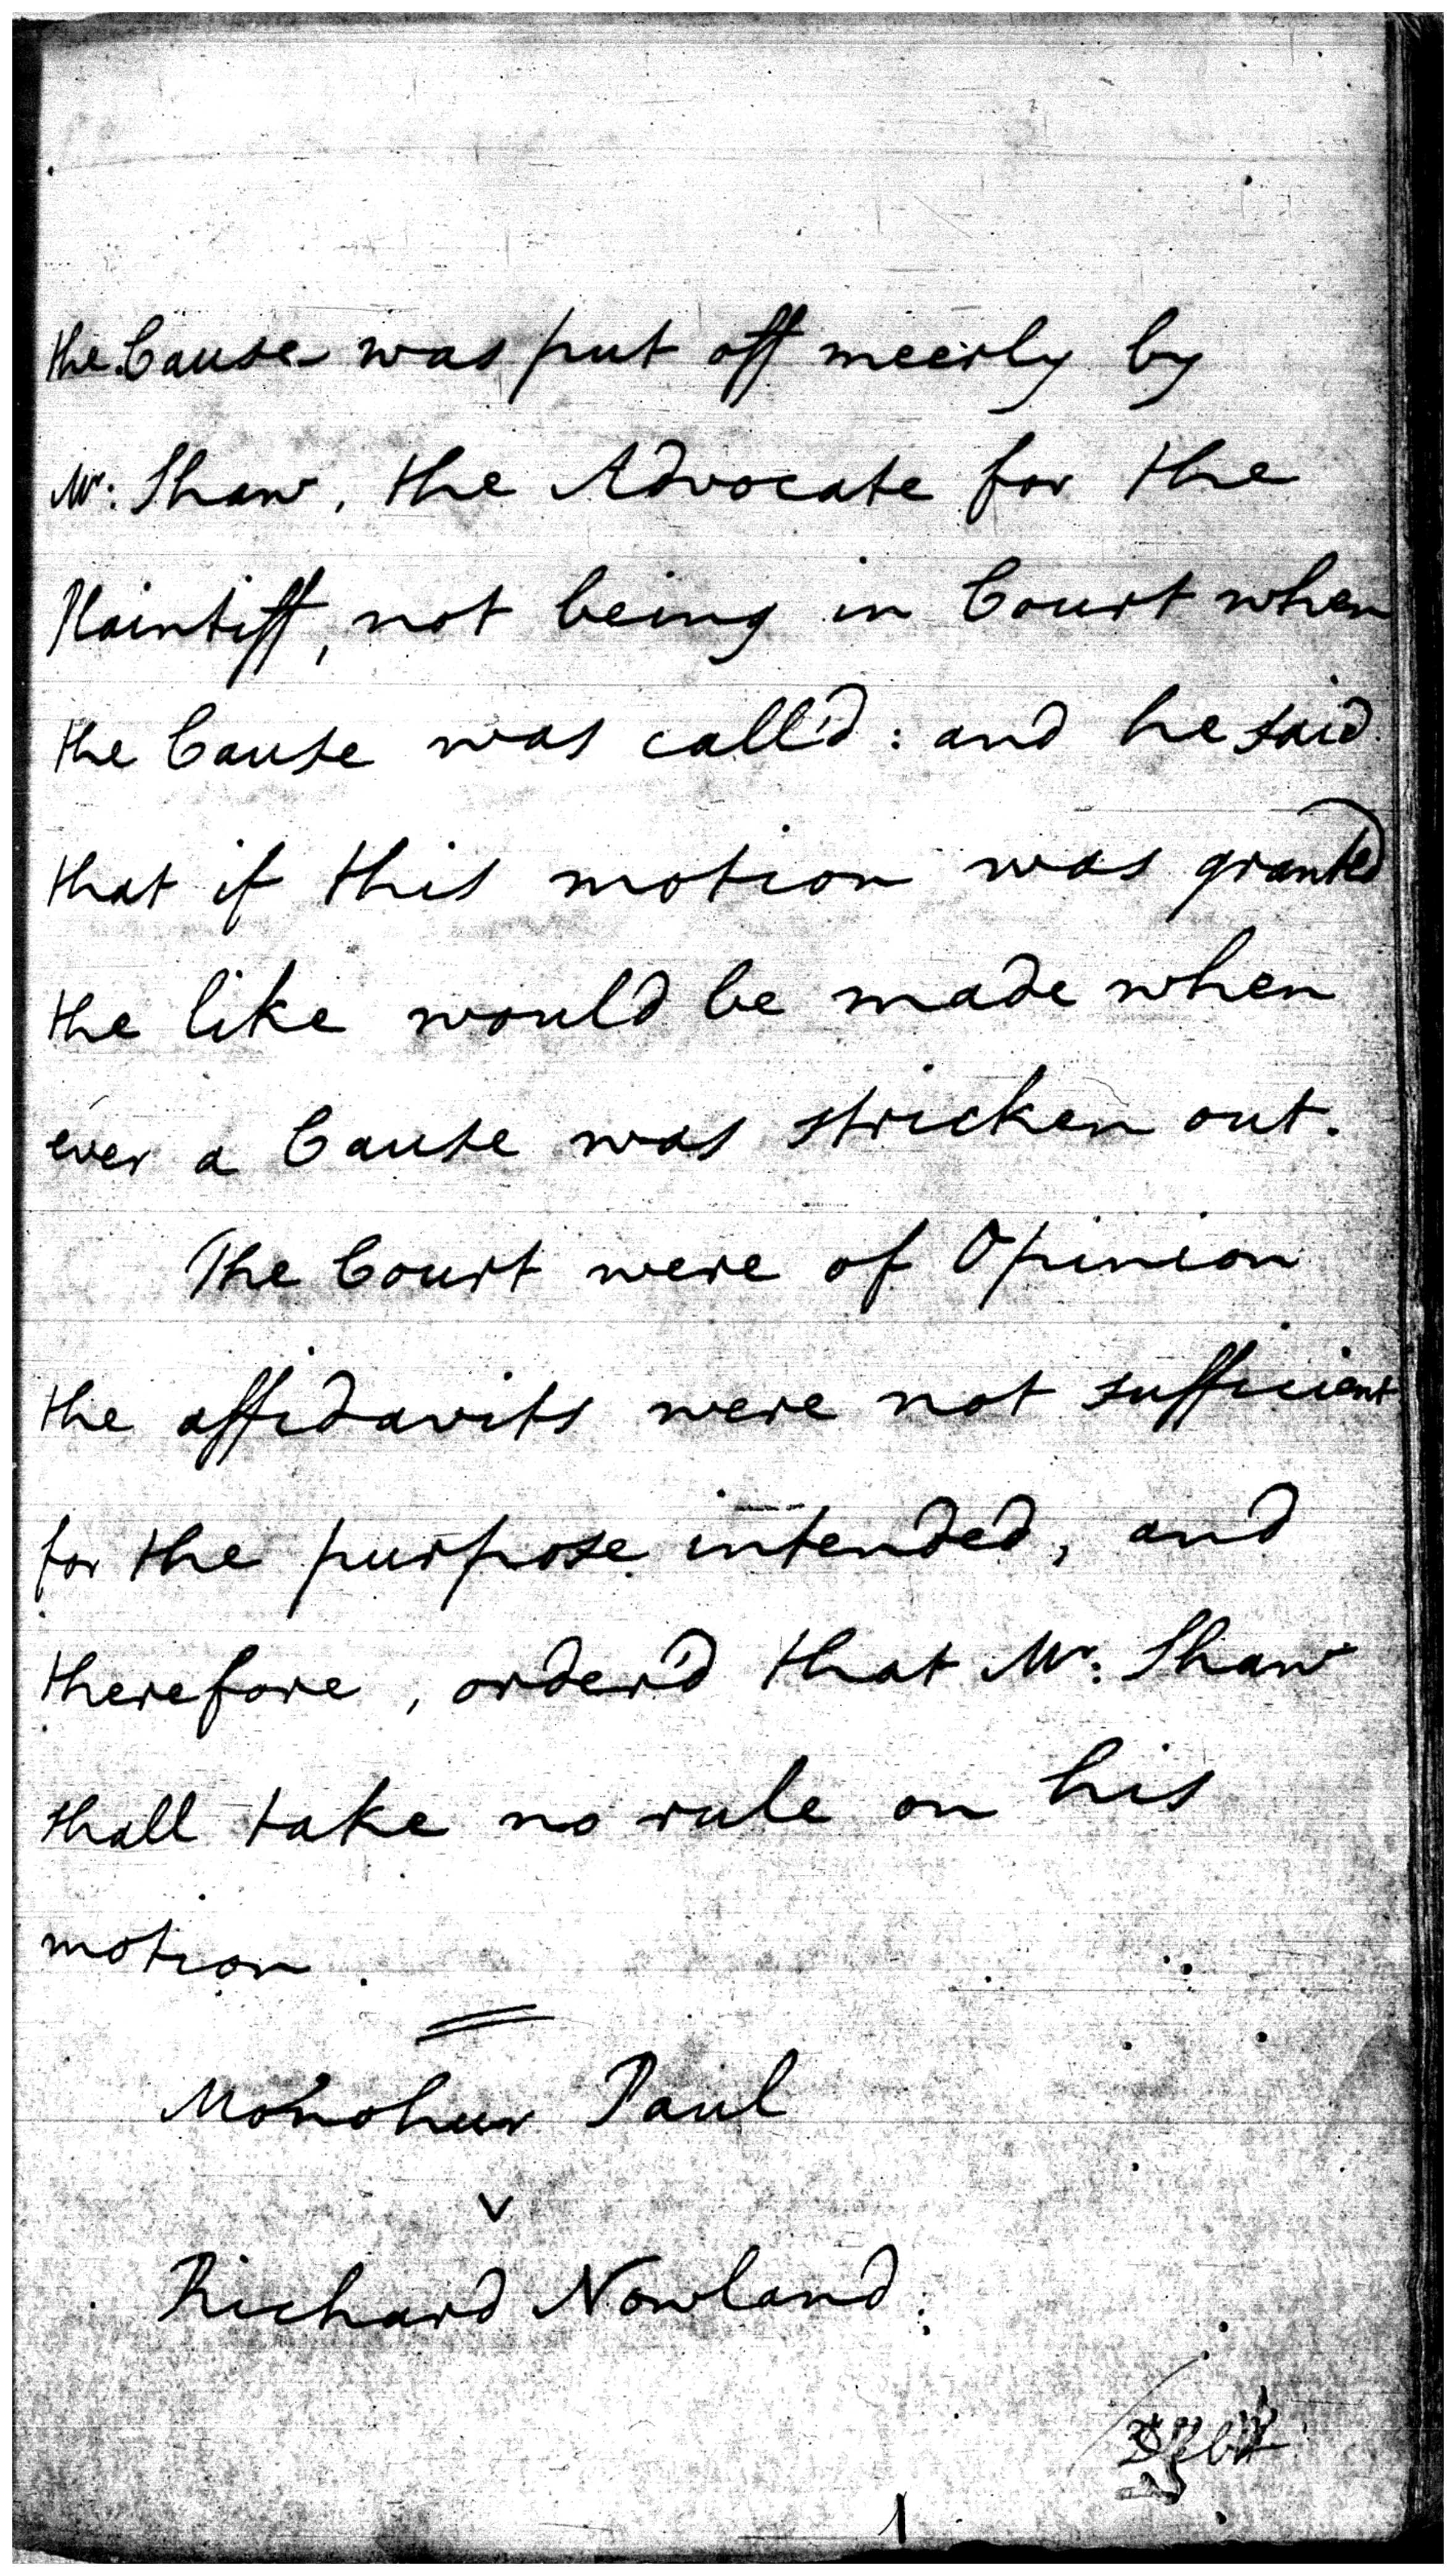 the Cause was put off meerly by
Mr: Shaw, the Advocate for the
Plaintiff, not being in Court when
the Cause was call'd: and he said
that if this motion was granted
the like would be made when
ever a Cause was stricken out.
The Court were of Opinion
the affidavits were not sufficient
for the purpose intended, and
therefore, order'd that Mr: Shaw
shall take no rule on his
motion.
Monohur Paul
v
Richard Nowland: